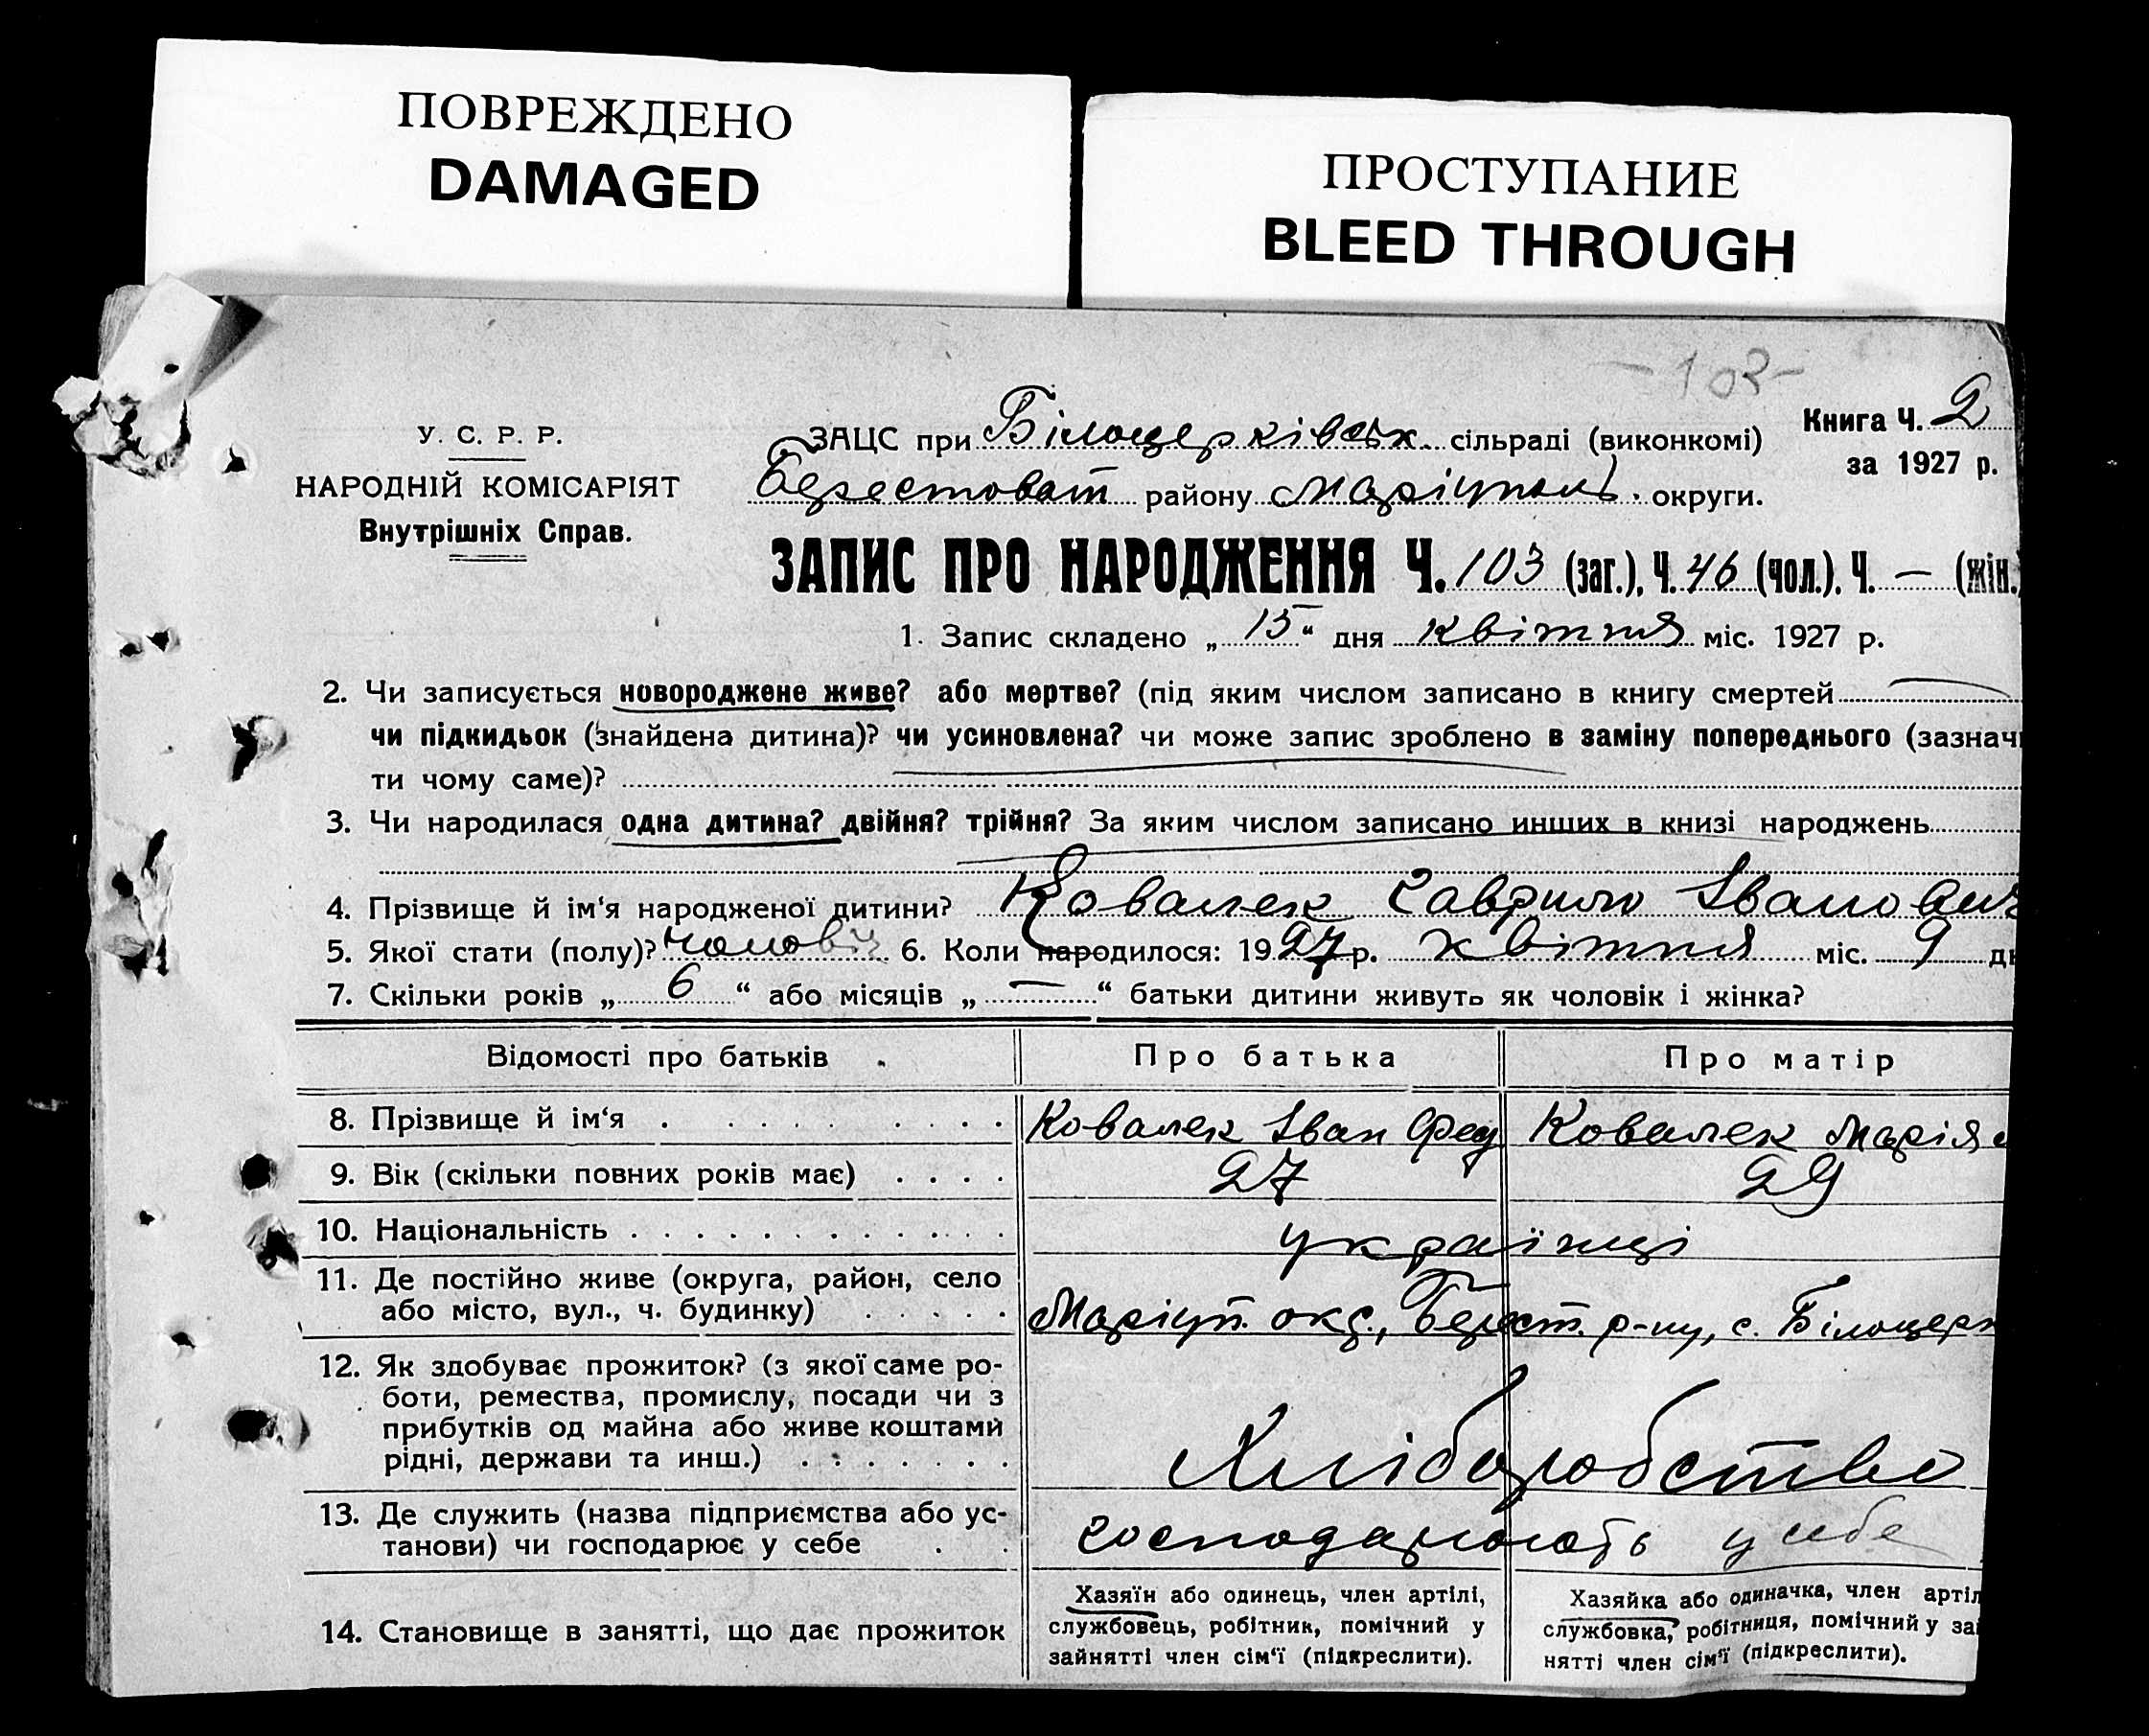 ПОВРЕЖДЕНО
DAMAGED
ПРОСТУПАНИЕ
BLEED THROUGH
-103-
У. С. Р. Р.
НАРОДНІЙ КОМІСАРІЯТ
Внутрішніх Справ.
ЗАЦС при Білоцерківськ. сільраді (виконкомі)
Берестоват району Маріупол. округи.
Книга Ч. 2
за 1927 р.
ЗАПИС ПРО НАРОДЖЕННЯ Ч. 103 (заг.), Ч. 46 (чол.), Ч. — (жін.)
1. Запис складено „ 15 “ дня квітня міс. 1927 р.
2. Чи записується новороджене живе? або мертве? (під яким числом записано в книгу смертей
чи підкидьок (знайдена дитина)? чи усиновлена? чи може запис зроблено в заміну попереднього (зазначи
ти чому саме)?
3. Чи народилася одна дитина? двійня? трійня? За яким числом записано инших в книзі народжень
4. Прізвище й ім‘я народженої дитини? Ковалек Гаврило Іванович
5. Якої стати (полу)? чоловіч 6. Коли народилося: 1927 р. квітня міс. 9 дн
7. Скільки років „ 6 “ або місяців „ — “ батьки дитини живуть як чоловік і жінка?
Відомості про батьків Про батька Про матір
8. Прізвище й ім‘я Ковалек Іван Фед Ковалек Марія
9. Вік (скільки повних років має) 27 29
10. Національність українці
11. Де постійно живе (округа, район, село
або місто, вул., ч. будинку) Маріуп. окр., Берест. р-ну, с. Білоцерк
12. Як здобуває прожиток? (з якої саме ро-
боти, ремества, промислу, посади чи з
прибутків од майна або живе коштами
рідні, держави та инш.) Хліборобство
13. Де служить (назва підприємства або ус-
танови) чи господарює у себе господарюють у себе
14. Становище в занятті, що дає прожиток
Хазяїн або одинець, член артілі,
службовець, робітник, помічний у
зайнятті член сім‘ї (підкреслити).
Хазяйка або одиначка, член артіл
службовка, робітниця, помічний у зай
нятті член сім‘ї (підкреслити).